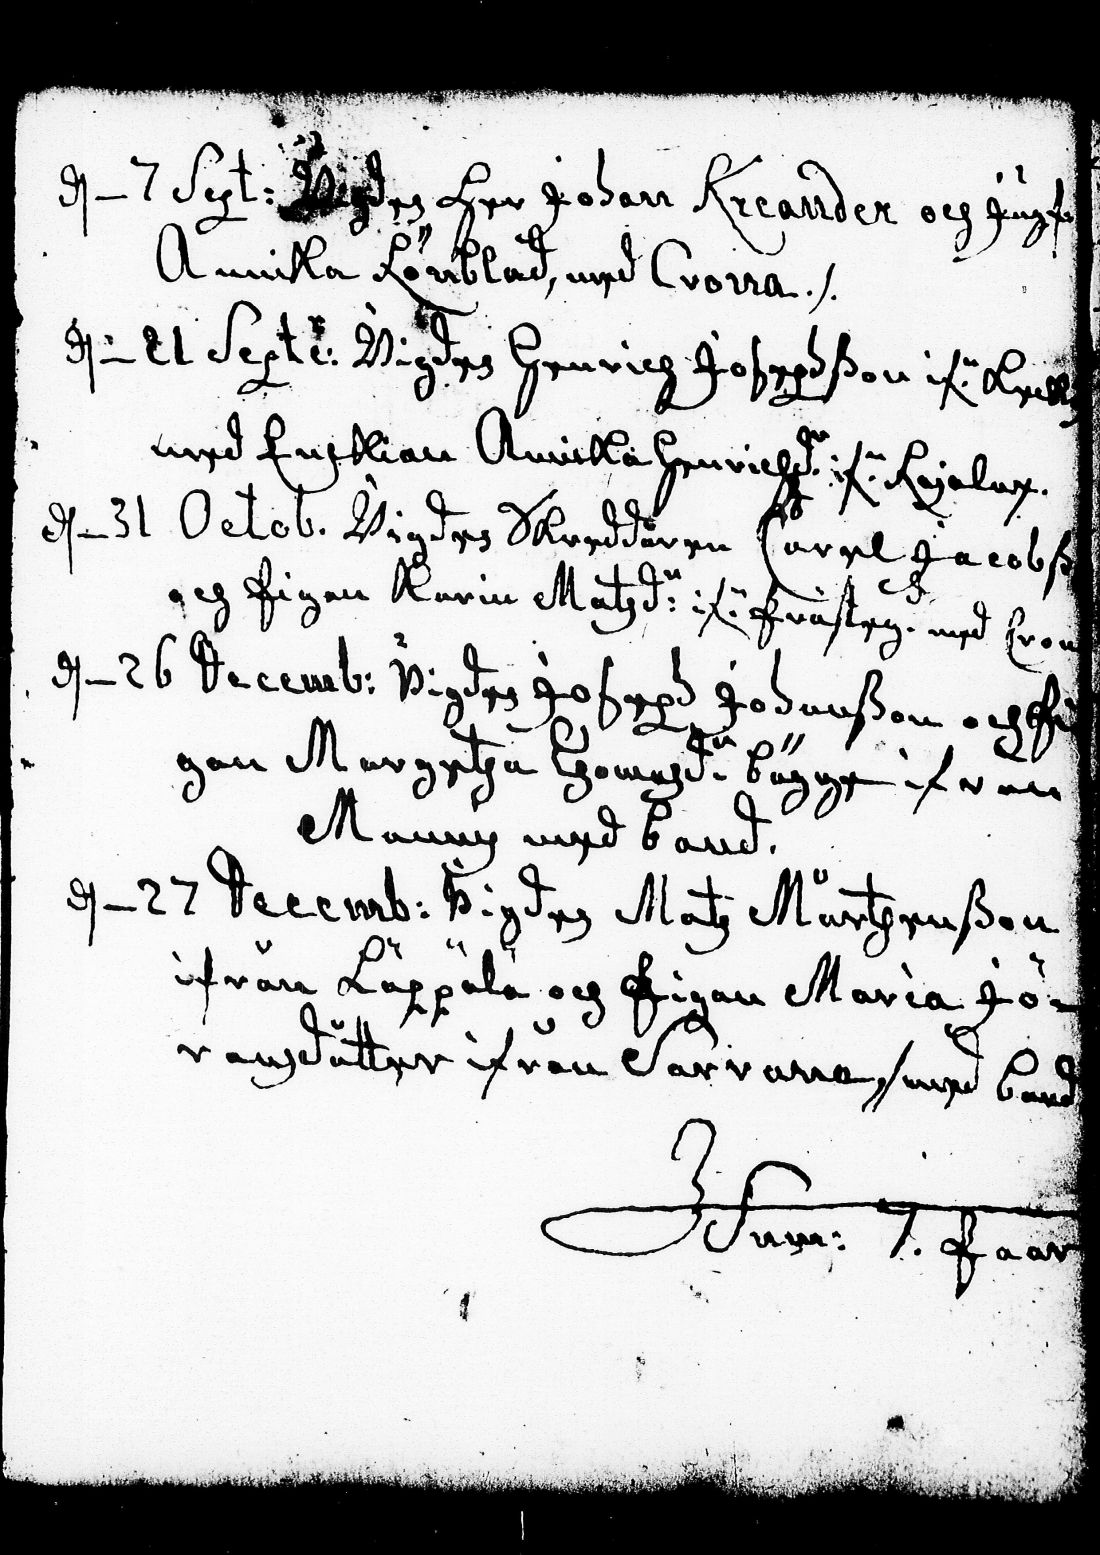 d. 7 Sept: Vigdes Her Johan Kreander och Jungf
Annika Lönblad, med Crona ./.
d. 21 Septe: Vigdes Henrich Josephßon if:
med Enkkian Annika Henrichsdr. if:n Kajalax.
d. 31 Octob. Vigdes Skreddaren Carel Jacobß
och Pigan Karin Matzdr: if: Prästeg. med Cron
d. 26 Decemb: Vigdes Joseph Johanßon och Pi
gan Margetha Thomasdr. bägge ifrån
med band.
d. 27 Decemb: Vigdes Matz Mårthenßon
ifrån Läppälä och Pigan Maria Jö-
ransdåtter ifrån Sarvana, med band
Sum: 7. Paar